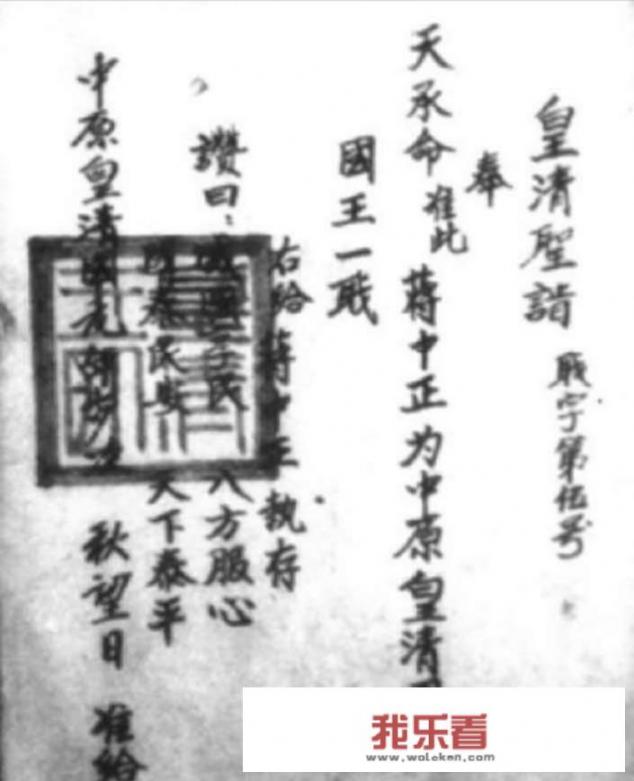 皇清聖詣 戝字第伍号
奉
天承命准此 蔣中正为中原皇清
國王一戝
右给蔣中正执存
讚曰： 民 八方服心
國泰民安 天下泰平
中原皇清國 秋望日 准给
我乐看
www.woleken.com